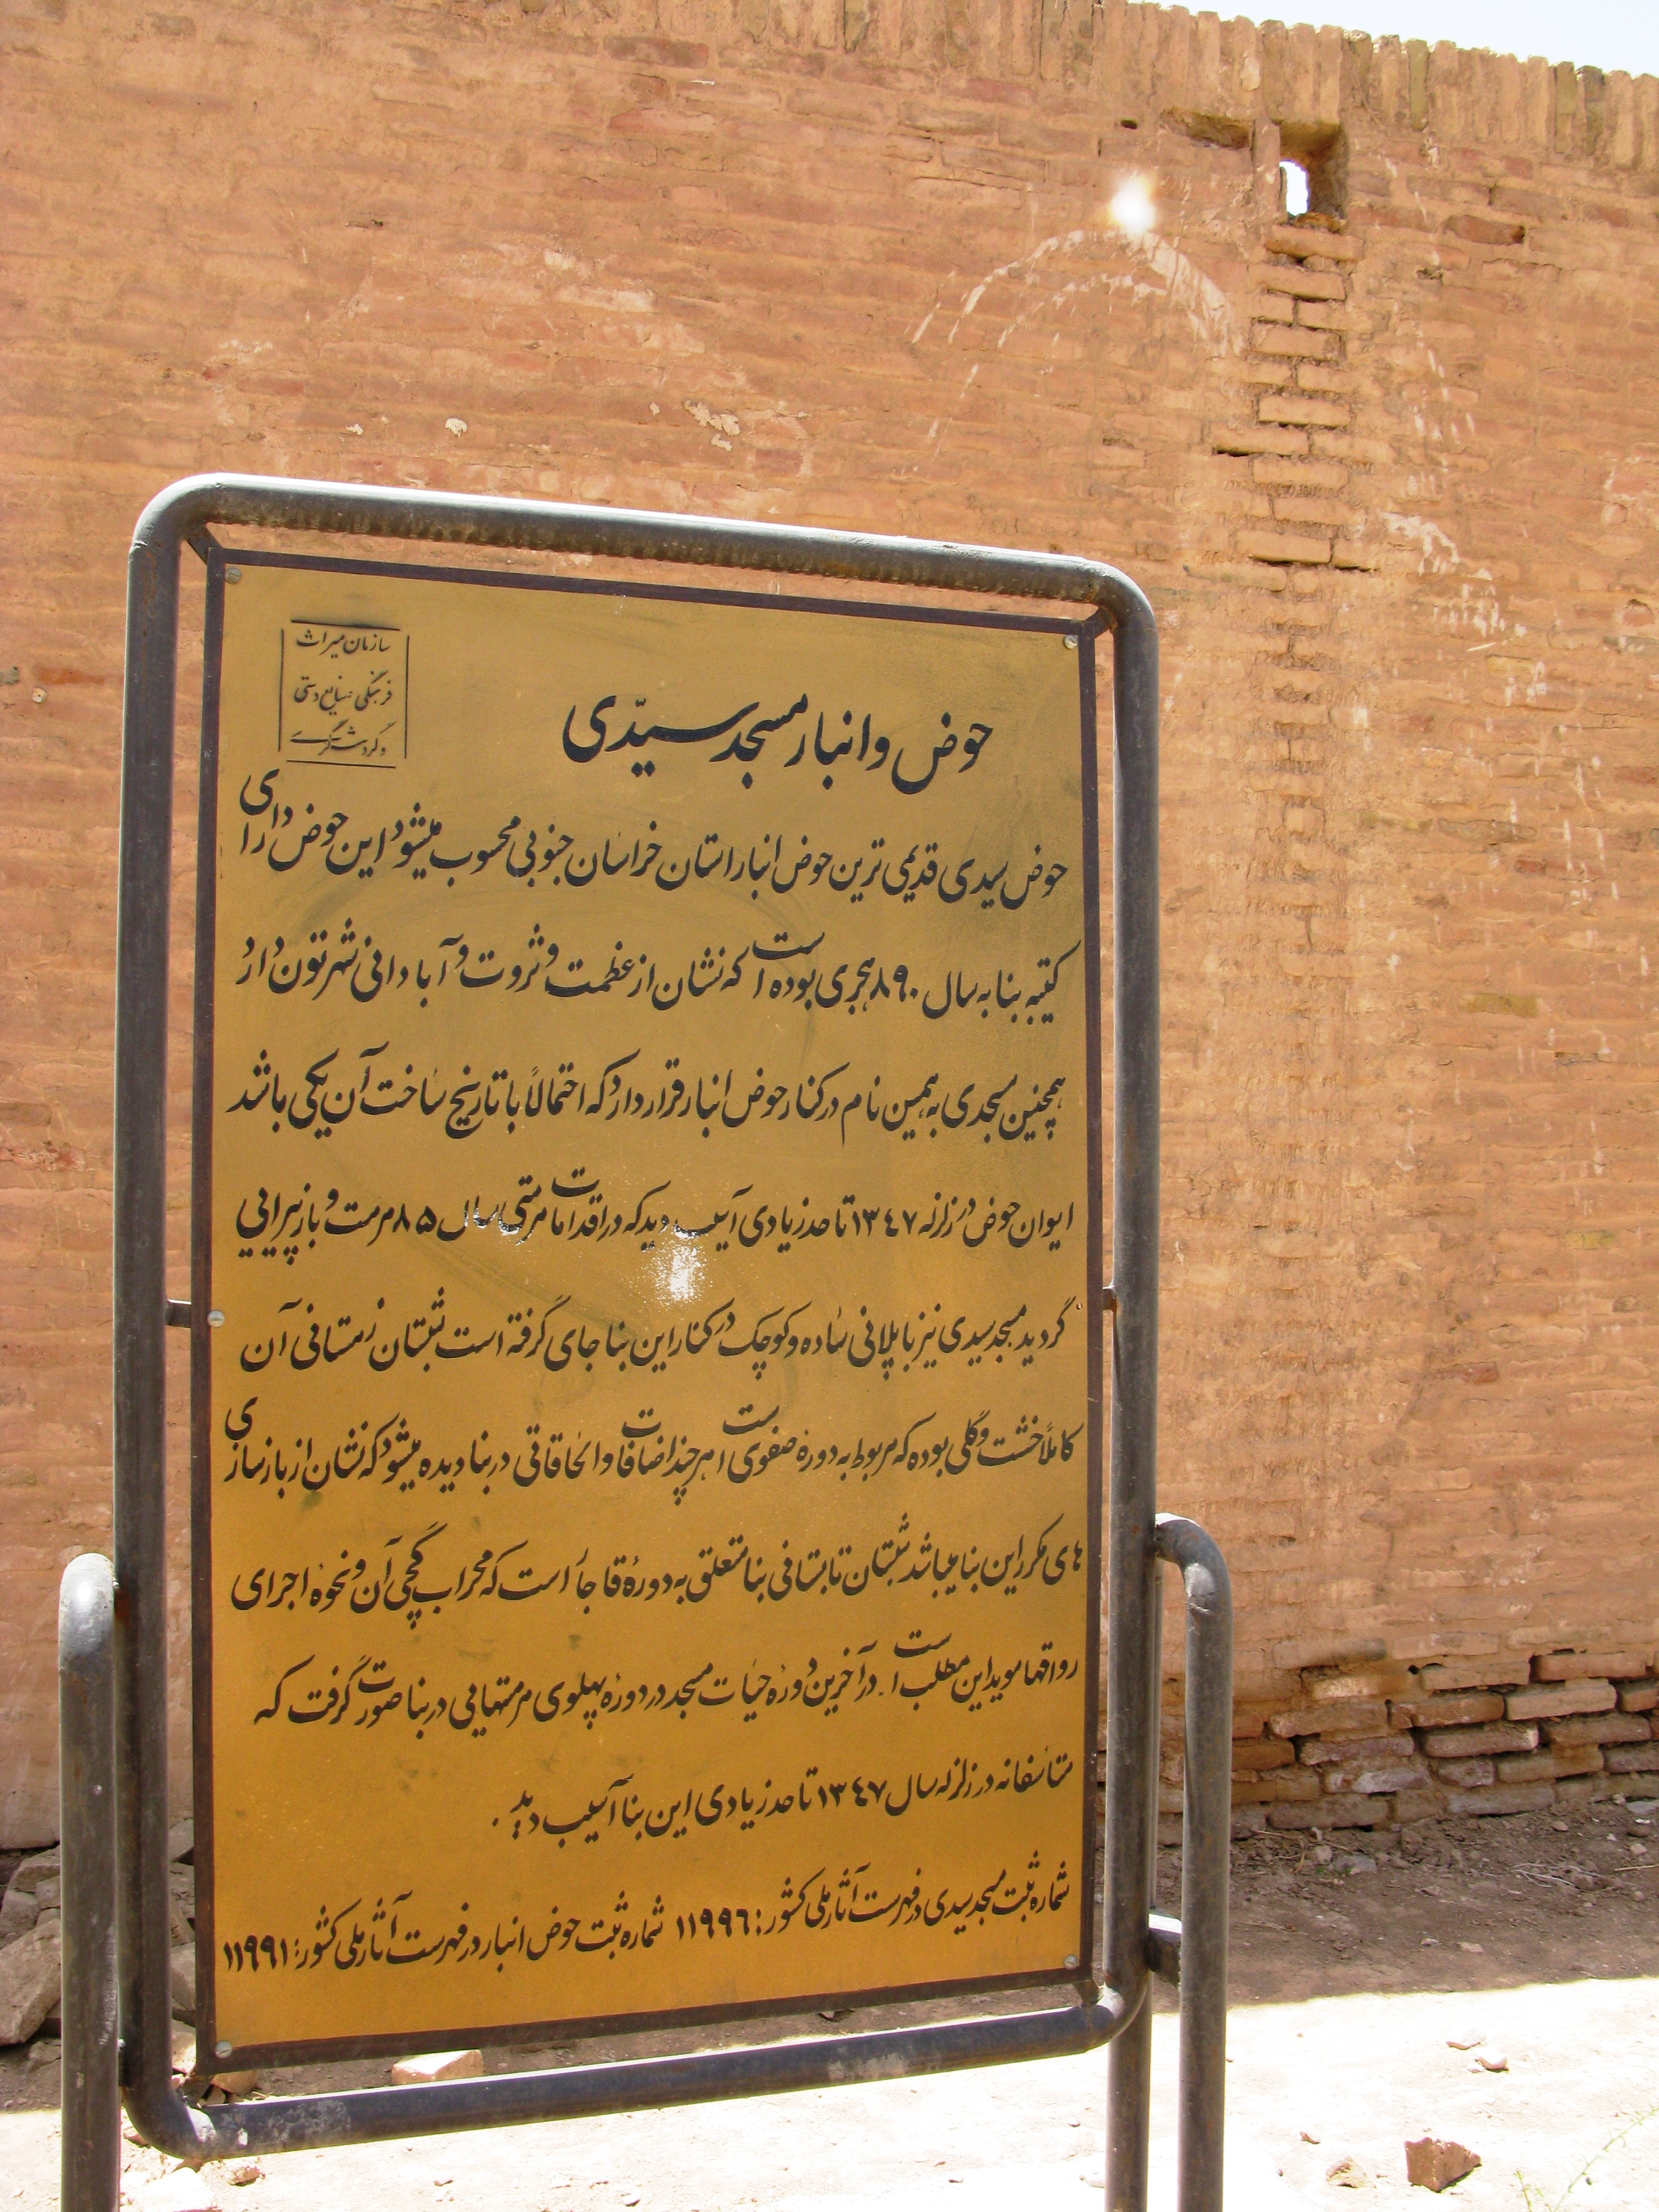 سازمان میراث
فرهنگی صنایع دستی
و گردشگری
حوض و انبار مسجد سیدّی
حوض سیدی قدیمی ترین حوض انبار استان خراسان جنوبی محسوب میشود این حوض دارای
کتیبه بنا به سال ۸۹۰ هجری بوده است که نشان از عظمت و ثروت و آبادانی شهر تون دارد
همچنین مسجدی به همین نام در کنار حوض انبار قرار دارد که احتمالاً با تاریخ ساخت آن یکی باشد
ایوان حوض در زلزله ۱۳٤۷ تا حد زیادی آسیب دید که در اقدامات مرمتی سال ۸۵ مرمت و بازپیرایی
گردید مسجد سیدی نیز با پلانی ساده و کوچک در کنار این بنا جای گرفته است شبستان زمستانی آن
کاملاً خشت و گلی بوده که مربوط به دوره صفوی است هر چند اضافات و الحاقاتی در بنا دیده میشود که نشان از بازسازی
های مکرر این بنا میباشد شبستان تابستانی بنا متعلق به دورهٔ قاجار است که محراب گچی آن و نحوه اجرای
رواقها موید این مطلب است. در آخرین دوره حیات مسجد در دوره پهلوی مرمتهایی در بنا صورت گرفت که
متاسفانه در زلزله سال ۱۳٤۷ تا حد زیادی این بنا آسیب دید.
شماره ثبت مسجد سیدی در فهرست آثار ملی کشور: ۱۱۹۹٦ شماره ثبت حوض انبار در فهرست آثار ملی کشور: ۱۱۹۹۱